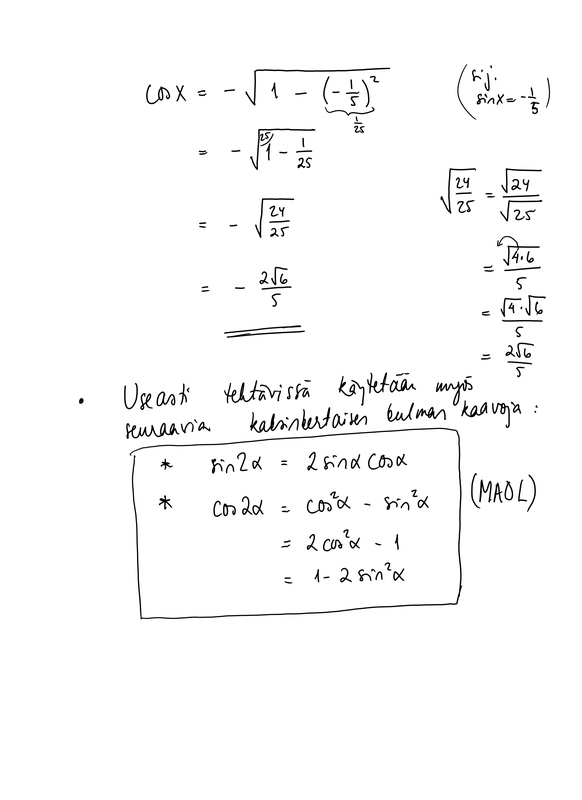 cos x = - √(1 - (-1/5)²) (sij. sin x = -1/5)
1/25
= - √(²⁵⁾1 - 1/25)
= - √(24/25)
= - 2√6/5
√(24/25) = √24/√25
= √(4·6)/5
= √4·√6/5
= 2√6/5
• Useasti tehtävissä käytetään myös
seuraavia kaksinkertaisen kulman kaavoja:
* sin2α = 2 sinα cosα
* cos2α = cos²α - sin²α (MAOL)
= 2cos²α - 1
= 1 - 2 sin²α